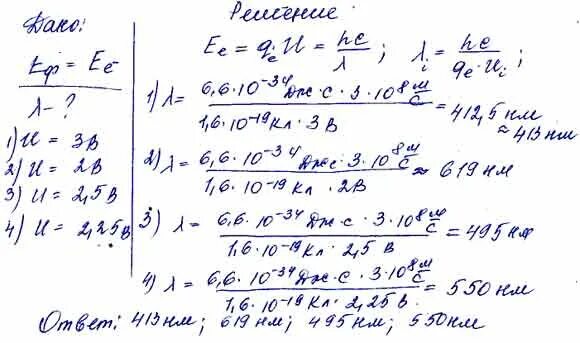 Дано:
Eф = Ee
λ - ?
1) U = 3В
2) U = 2В
3) U = 2,5 В
4) U = 2,25 В
Решение
Ee = qe U = hc/λ ; λi = hc/qe·Ui ;
1) λ = 6,6·10^-34 Дж·с·3·10^8 м/с / 1,6·10^-19 Кл·3В = 412,5 нм
≈ 413 нм
2) λ = 6,6·10^-34 Дж·с·3·10^8 м/с / 1,6·10^-19 Кл·2В ≈ 619 нм
3) λ = 6,6·10^-34 Дж·с·3·10^8 м/с / 1,6·10^-19 Кл·2,5 В = 495 нм
4) λ = 6,6·10^-34 Дж·с·3·10^8 м/с / 1,6·10^-19 Кл·2,25 В = 550 нм
Ответ: 413 нм; 619 нм; 495 нм; 550 нм